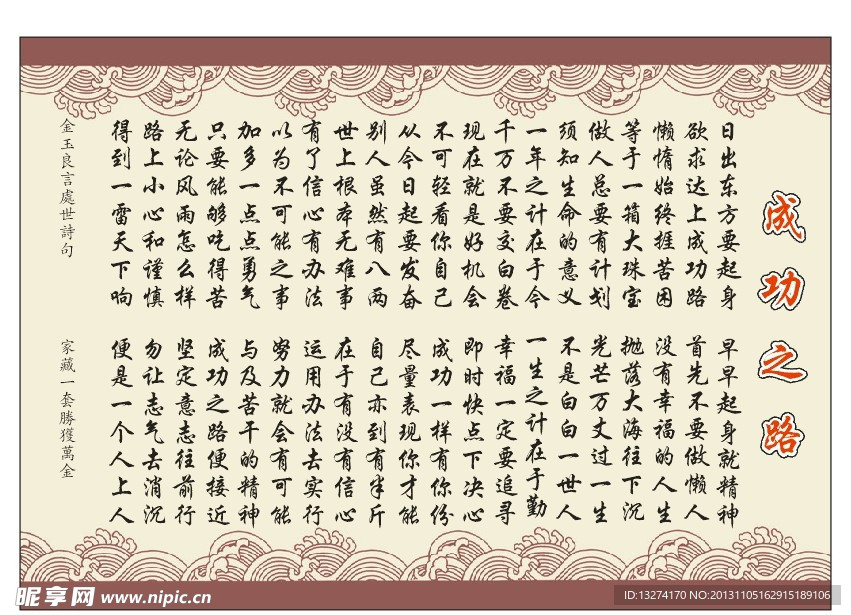 成功之路
日出东方要起身 早早起身就精神
欲求达上成功路 首先不要做懒人
懒惰始终捱苦困 没有幸福的人生
等于一箱大珠宝 抛落大海往下沉
做人总要有计划 光芒万丈过一生
须知生命的意义 不是白白一世人
一年之计在于今 一生之计在于勤
千万不要交白卷 幸福一定要追寻
现在就是好机会 即时快点下决心
不可轻看你自己 成功一样有你份
从今日起要发奋 尽量表现你才能
别人虽然有八两 自己亦到有半斤
世上根本无难事 在于有没有信心
有了信心有办法 运用办法去实行
以为不可能之事 努力就会有可能
加多一点点勇气 与及苦干的精神
只要能够吃得苦 成功之路便接近
无论风雨怎么样 坚定意志往前行
路上小心和谨慎 勿让志气去消沉
得到一雷天下响 便是一个人上人
金玉良言處世詩句 家藏一套勝獲萬金
昵享网 www.nipic.cn
ID:13274170 NO:20131105162915189106